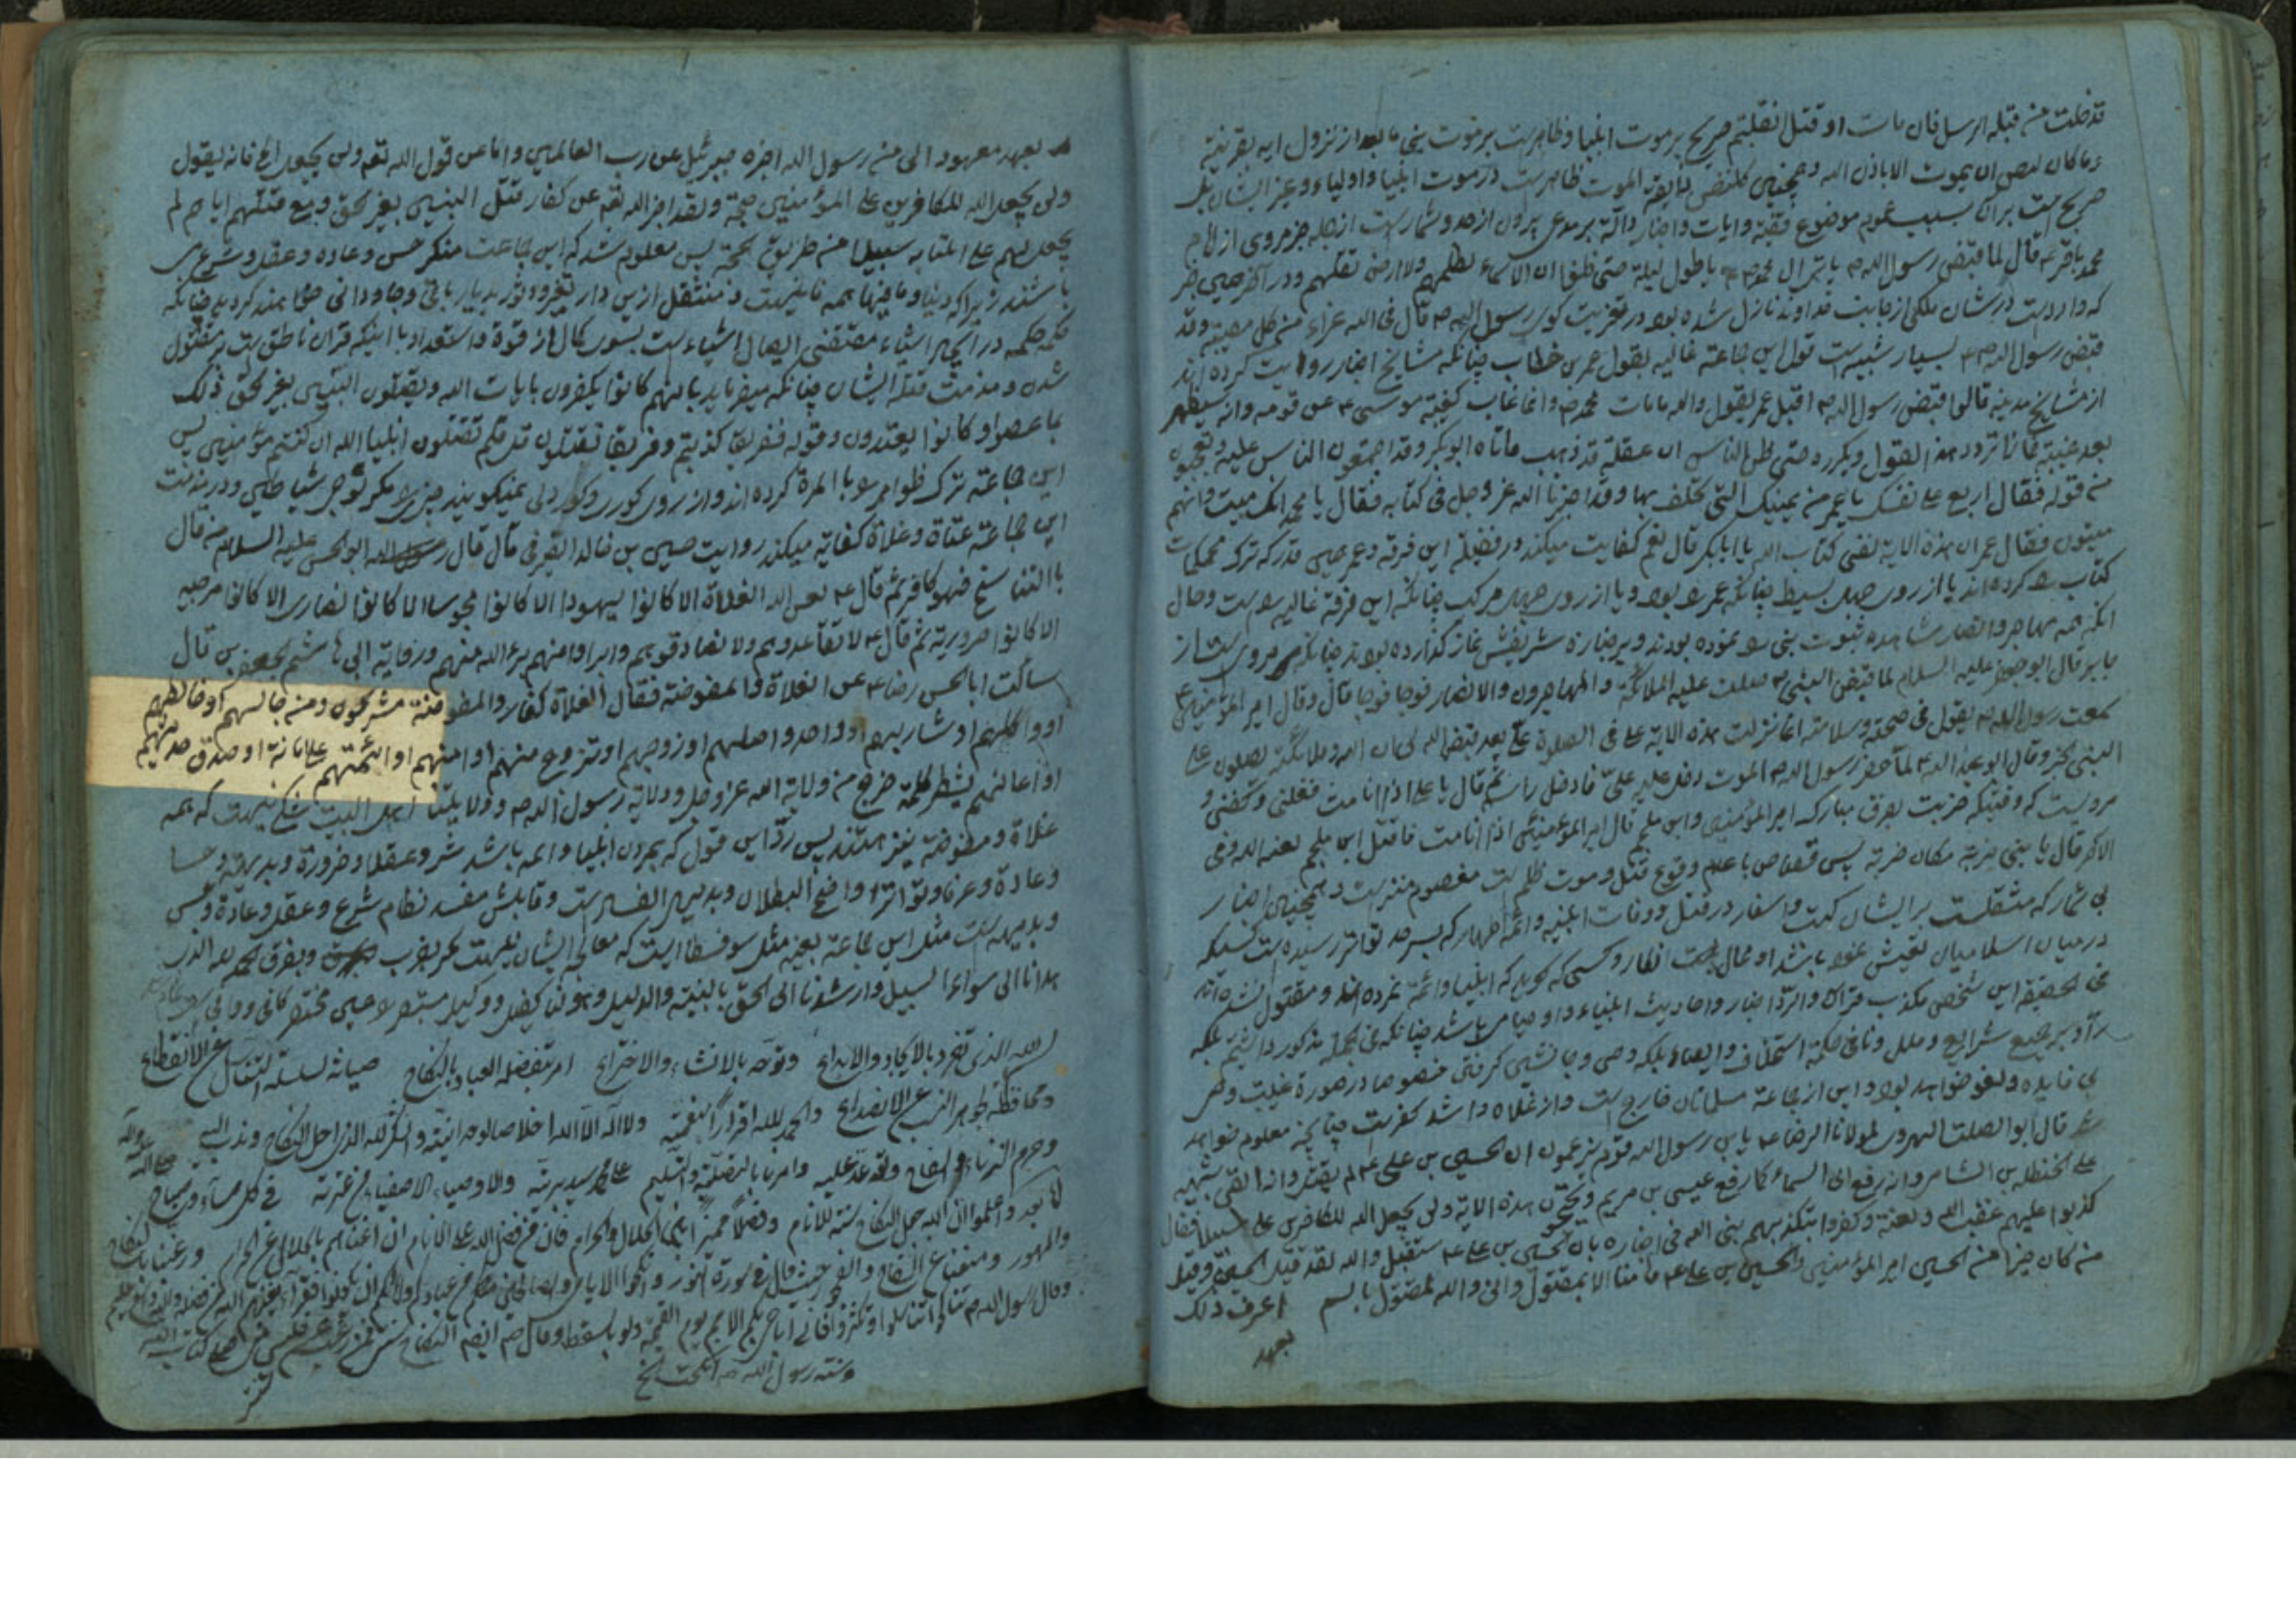 قد خلت من قبله الرسل فان مات او قتل انقلبتم صریح بر موت انبیا و ظاهر است بر موت نبی ما بعد از نزول ایه بقرینه
و ما کان لنفس ان یموت الا باذن الله و همچنین کل نفس ذایقة الموت ظاهر است در موت انبیا و اولیا و غیر ایشان بلکه
صریح است بر آن بسبب عموم موضوع قضیه و ایات و اخبار دالة بر مدعی برون از حد و شمار است از جمله خبر مروی از امام
محمد باقر ع قال لما قبض رسول الله ص بات ال محمد ص باطول لیلة حتی ظنوا ان لا سماء تظلهم ولا ارض تقلهم و در اکثر همین خبر
که وارد است در شان ملکی از جانب خداوند نازل شده بود در تعزیت کوی رسول الله ص قال فی الله عزاء من کل مصیبة وقد
قبض رسول الله ص بسیار شبیه است قول این جماعة غالیه بقول عمر بن خطاب چنانکه مشایخ اخبار روایت کرده اند
از مشایخ مدینه قالوا قبض رسول الله ص اقبل عمر یقول والله ما مات محمد ص وانما غاب کغیبة موسی ع عن قومه وانه سیظهر
بعد غیبته فما زال یردد هذا القول ویکرره حتی ظن الناس ان عقله قد ذهب فاتاه ابو بکر وقد اجتمعوا الناس علیه یتعجبون
من قوله فقال اربع علی نفسک یا عمر من یمینک التی تحلف بها وقد اخبرنا الله عز وجل فی کتابه فقال یا محمد انک میت وانهم
میتون فقال عمر ان هذه الایة لفی کتاب الله یا ابا بکر قال نعم کفایت میکند در فضیلة این فرقه و عمر همین قدر که ترک محکمات
کتاب را کرده اند یا از روی جهل بسیط چنانکه عمر را بود و یا از روی جهل مرکب چنانکه این فرقه غالیه را است و حال
انکه همه مهاجر و انصار مشاهده ثبوت نبی را نموده بودند و بر جنازه شریفش نماز گذارده بودند چنانکه مروی است از
جابر قال ابو جعفر علیه السلام لما قبض النبی ص صلت علیه الملائکة والمهاجرون والانصار فوجا فوجا قال وقال امیر المؤمنین ع
سمعت رسول الله ص یقول فی صحته وسلامته انما نزلت هذه الایة علی فی الصلوة علی بعد قبض الله لی ان الله وملائکته یصلون علی
النبی الخ وقال ابو عبد الله ع لما حضر رسول الله ص الموت دخل علیه علی فادخل راسه ثم قال یا علی اذا انا مت فغسلنی وکفنی و
مرویست که وقتیکه ضربت بفرق مبارک امیر المؤمنین زد ابن ملجم قال امیر المؤمنین اذا انا مت فاقتل ابن ملجم لعنه الله وفی
الاخر قال یا بنی ضربة مکان ضربة پس قصاص با عدم وقوع قتل و موت ظلم است معصوم منزه است و همچنین اخبار
بی شمار که مشتملست بر ایشان کتب و اسفار در قتل و وفات انبیا و ائمه اطهار که بسر حد تواتر رسیده است کسیکه
در میان اسلامیان تعیش نموده باشد او مجال است انکار و کسی که گوید که انبیا و ائمة نمرده اند و مقتول نشده اند
فی الحقیقه این شخص مکذب قران و الراد اخبار و احادیث انبیاء و اوصیا می باشد چنانکه فی الجمله مذکور داشتم بلکه
راد بر جمیع شرایع و ملل و نافی حکمة استخلاف و ایصاء بلکه وصی و جانشین گرفتن خصوصا در صورة غیبت وصی
بی فایده و لغو خواهد بود و این از جماعة مسلمانان خارج است و از غلاة و اشد کفر است چنانچه معلوم خواهد
شد قال ابو الصلت الهروی لمولانا الرضا ع یابن رسول الله قوم یزعمون ان الحسین بن علی ع لم یقتل وانه القی شبهه
علی حنظلة بن الشامر وانه رفع الی السماء کما رفع عیسی بن مریم ویحتجون بهذه الایة ولن یجعل الله للکافرین علی المؤمنین سبیلا فقال
کذبوا علیهم غضب الله ولعنة وکفروا بتکذیبهم بنبی الله فی اخباره بان الحسین بن علی ع سیقتل والله لقد قتل الحسین وقتل
من کان خیرا من الحسین امیر المؤمنین والحسن بن علی ع ما منا الا بمقتول وانی والله لمقتول بالسم اعرف ذلک
بعهد
بعهد معهود الی من رسول الله اخبره جبرئیل عن رب العالمین واما عن قول الله تعه ولن یجعل الخ فانه یقول
ولن یجعل الله للکافرین علی المؤمنین حجة ولقد اخبر الله تعه عن کفار قتلوا النبیین بغیر الحق ومع قتلهم ایاهم لم
یجعل لهم علی انبیائه سبیلا من طریق الحجة پس معلوم شد که این جماعت منکر حس و عاده و عقل و شرع می
باشند زیرا که دنیا و ما فیها همه فانیست و منتقل ازین دار تغیر و تزویر بدیار باقی و جاودانی خواهند گردید چنانکه
حکمة حکمیه در ایجاد اشیاء مقتضی ایصال اشیاء است بسوی کمال از قوة و استعداد با اینکه قران ناطق است بر مقتول
شدن و مذمت قتلة ایشان چنانکه میفرماید بانهم کانوا یکفرون بایات الله ویقتلون النبیین بغیر الحق ذلک
بما عصوا و کانوا یعتدون وقوله ففریقا کذبتم وفریقا تقتلون قد قلتم تقتلون انبیاء الله ان کنتم مؤمنین پس
این جماعة ترک ظواهر را بالمرة کرده اند و از روی کوری و کور دلی نمیگویند چیزی را مگر بوحی شیاطین و در مذمت
این جماعة عتاة و غلاة کفایة میکند روایت حسین بن خالد الصیرفی قال قال ابو الحسن علیه السلام من قال
بالتناسخ فهو کافر ثم قال ع لعن الله الغلاة الا کانوا یهودا الا کانوا مجوسا الا کانوا نصاری الا کانوا مرجیه
الا کانوا حروریة ثم قال ع لا تقاعدوهم ولا تصادقوهم وابراوا منهم برء الله منهم ورفایة ابی هاشم جعفر بن قال
سالت ابا الحسن رضا ع عن الغلاة والمفوضة فقال الغلاة کفار والمفوضة مشرکون ومن جالسهم او خالطهم
او واکلهم او شاربهم او واصلهم او زوجهم او تزوج منهم او امنهم او ائتمنهم علی امانة او صدق حدیثهم
او اعانهم بشطر کلمة خرج من ولایة الله عز وجل وولایة رسول الله ص وولایتنا اهل البیت شکی نیست که همه
غلاة و مفوضة نیز هستند پس رد این قول که نمردن انبیا و ائمه باشد شرعا و عقلا و ضرورة و بدیهة و حسا
و عادة و عرفا و تواترا واضح البطلان و بدیهی الفساد است و قایلش مفسد نظام شرع و عقل و عادة و حس
و بدیهه است مثل این جماعة بعینه مثل سوفسطائیست که معالجه ایشان نیست مگر بضرب و بفرق الحمد لله الذی
هدانا الی سواء السبیل وارشدنا الی الحق بالبینة والدلیل وهو لنا کفیل ووکیل
لله الذی تفرد بالایجاد والابداع وتوحد بالانشاء والاختراع امر بفضله العباد بالنکاح صیانة لسلسلة التناسل عن الانقطاع
ومحافظة لجوهر النسب عن الانصداع والحمد لله اقرارا بنعمته ولا اله الا الله اخلاصا لوحدانیته والشکر لله الذی احل النکاح وندب الیه
وحرم الزناء والسفاح وتوعد علیه وامرنا بالتصلیة والتسلیم علی محمد سید بریته والاوصیاء الاصفیاء من عترته فی کل مساء وصباح
صلی الله علیه واله
اما بعد واعلموا ان الله جعل النکاح سنة للانام وفصلا ممیزا بین الحلال والحرام فان من فضل الله علی الانام ان اغناهم بالحلال عن الحرام ورغبنا بالنکاح
والمهور ومنعنا عن السفاح والفجور حیث قال فی سورة النور وانکحوا الایامی منکم والصالحین من عبادکم وامائکم ان یکونوا فقراء یغنهم الله من فضله والله واسع علیم
وقال رسول الله ص تناکحوا تناسلوا تکثروا فانی اباهی بکم الامم یوم القیمة ولو بالسقط وقال ص ایضا النکاح سنتی فمن رغب عن سنتی فلیس منی
وسنة رسول الله ص انکحت الخ